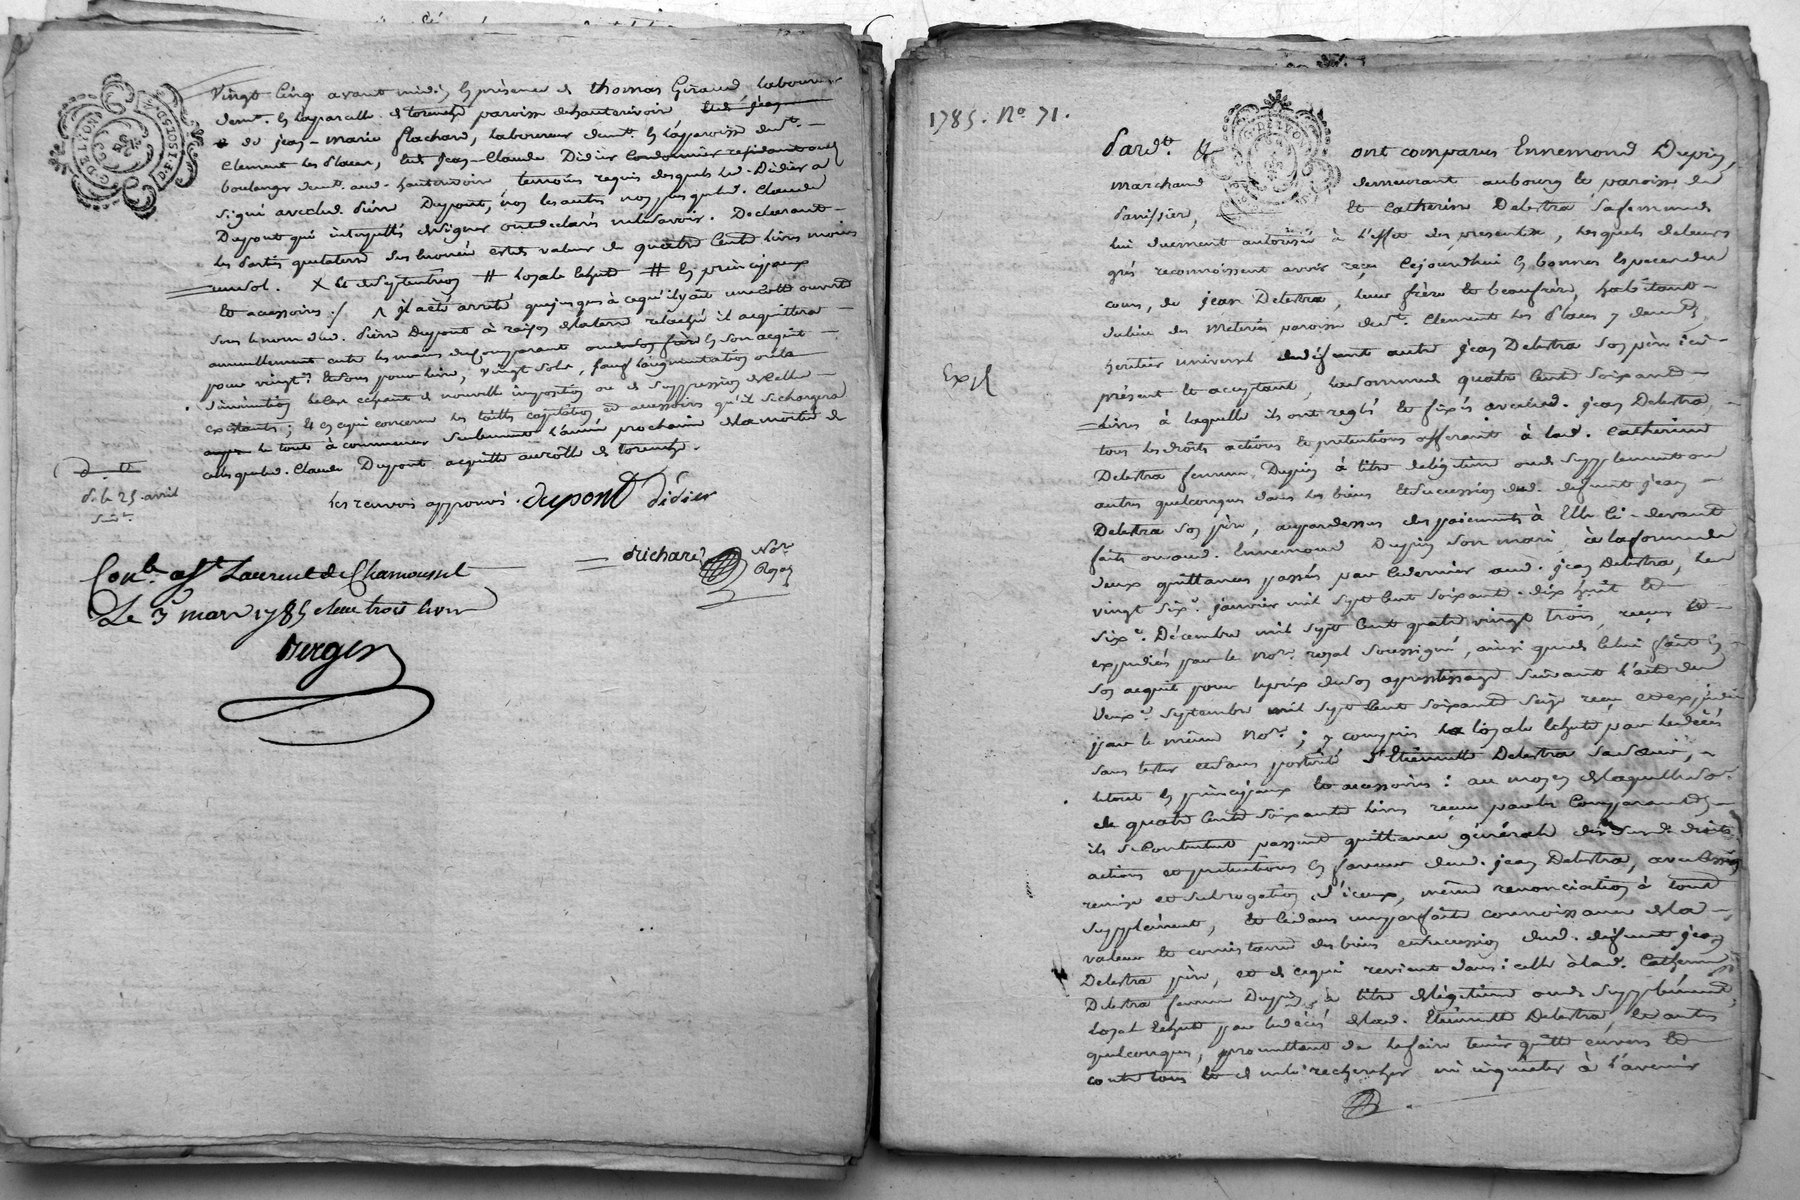 vingt cinq avant midi, en présence de thomas Giraud, laboureur
demt. en la parcelle de torenche paroisse de hauterivoir
& de jean-marie flachard, laboureur demt. en la paroisse de st.
Clement les places, jean-Claude Didier Cordonnier résidant
boulanger demt. aud. hauterivoir, temoins requis desquels led. Didier a
signé avec led. Pierre Dupont, non les autres non plus que led. Claude
Dupont qui interpellés de signer ont déclaré ne le savoir. Declarant
les parties que la terre est de valeur de quatre cents livres moins
un sol. X et de septentrion # loyale echute # en principaux
et accessoires ./. il a été arrêté que jusques à ce qu'il y ait une cotte ouverte
sous le nom dud. Pierre Dupont à raison de la terre relâchée il acquittera
annuellement entre les mains du comparant en son acquit
pour vingt. et sous pour livre, vingt sols, sauf l'augmentation ou la
diminution le cas echeant de nouvelle imposition ou de suppression de celles
existantes ; et en ce qui concerne les tailles capitation et accessoires qu'il se chargera
le tout à commencer seulement l'année prochaine de la moitié de
celles que led. Claude Dupont acquitte au rolle de torenche.
les renvois approuvés. dupont didier
d. le 25 avril
suivt.
drichard Nore.
Royal
Conle. a St. Laurent de Chamousset
Le 3 mars 1785 reçu trois livres
Berger
1785. No. 71.
Pardt. &c ont comparus Ennemond Dupin,
marchand demeurant au bourg et paroisse de
Panissière, et Catherine Delestra sa femme de
lui duement autorisée à l'effet des présentes, lesquels de leurs
grés reconnoissent avoir reçu cejourdhui en bonnes especes du
cours, de jean Delestra, leur frère et beaufrère, habitant
du lieu des Meteries paroisse de st. Clement les Places y demt.,
heritier universel de défunt autre jean Delestra son père ici
présent et acceptant, la somme de quatre cents soixante
Expé
livres à laquelle ils ont reglé et fixés avec led. jean Delestra,
tous les droits actions et prétentions afferant à lad. Catherine
Delestra femme Dupin à titre de légitime ou de supplement ou
autres quelconques dans les biens et succession dud. defunt jean
Delestra son père, au pardessus des paiements à Elle ci-devant
faits ou aud. Ennemond Dupin son mari, à la forme de
deux quittances passées par ce dernier aud. jean Delestra, les
vingt six. janvier mil sept cent soixante-dix huit et
six. Décembre mil sept cent quatre vingt trois, reçues et
expediées par le Nore. royal soussigné, ainsi que de celui fait en
son acquit pour le prix de son apprentissage suivant l'acte du
deux. Septembre mil sept cent soixante seize reçu et expedié
par le même Nore. ; y compris la loyale echute par le décès
sans tester et sans postérité d'Etiennette Delestra sa sœur,
le tout en principaux et accessoires : au moyen de laquelle som.
de quatre cents soixante livres reçue par les comparants
ils se contentent passent quittance générale desdits droits
actions et prétentions en faveur dud. jean Delestra, avec cession
remise et subrogation d'iceux, même renonciation à tout
supplément, et ce dans une parfaite connoissance de la
valeur et consistance des biens et succession dud. defunt jean
Delestra père, et de ce qui revient dans icelle à lad. Catherine
Delestra femme Dupin à titre de légitime ou de supplément,
loyale echute par le décès de lad. Etiennette Delestra, et autres
quelconques, promettant de le faire tenir quitte envers et
contre tous et de ne le rechercher ni inquieter à l'avenir